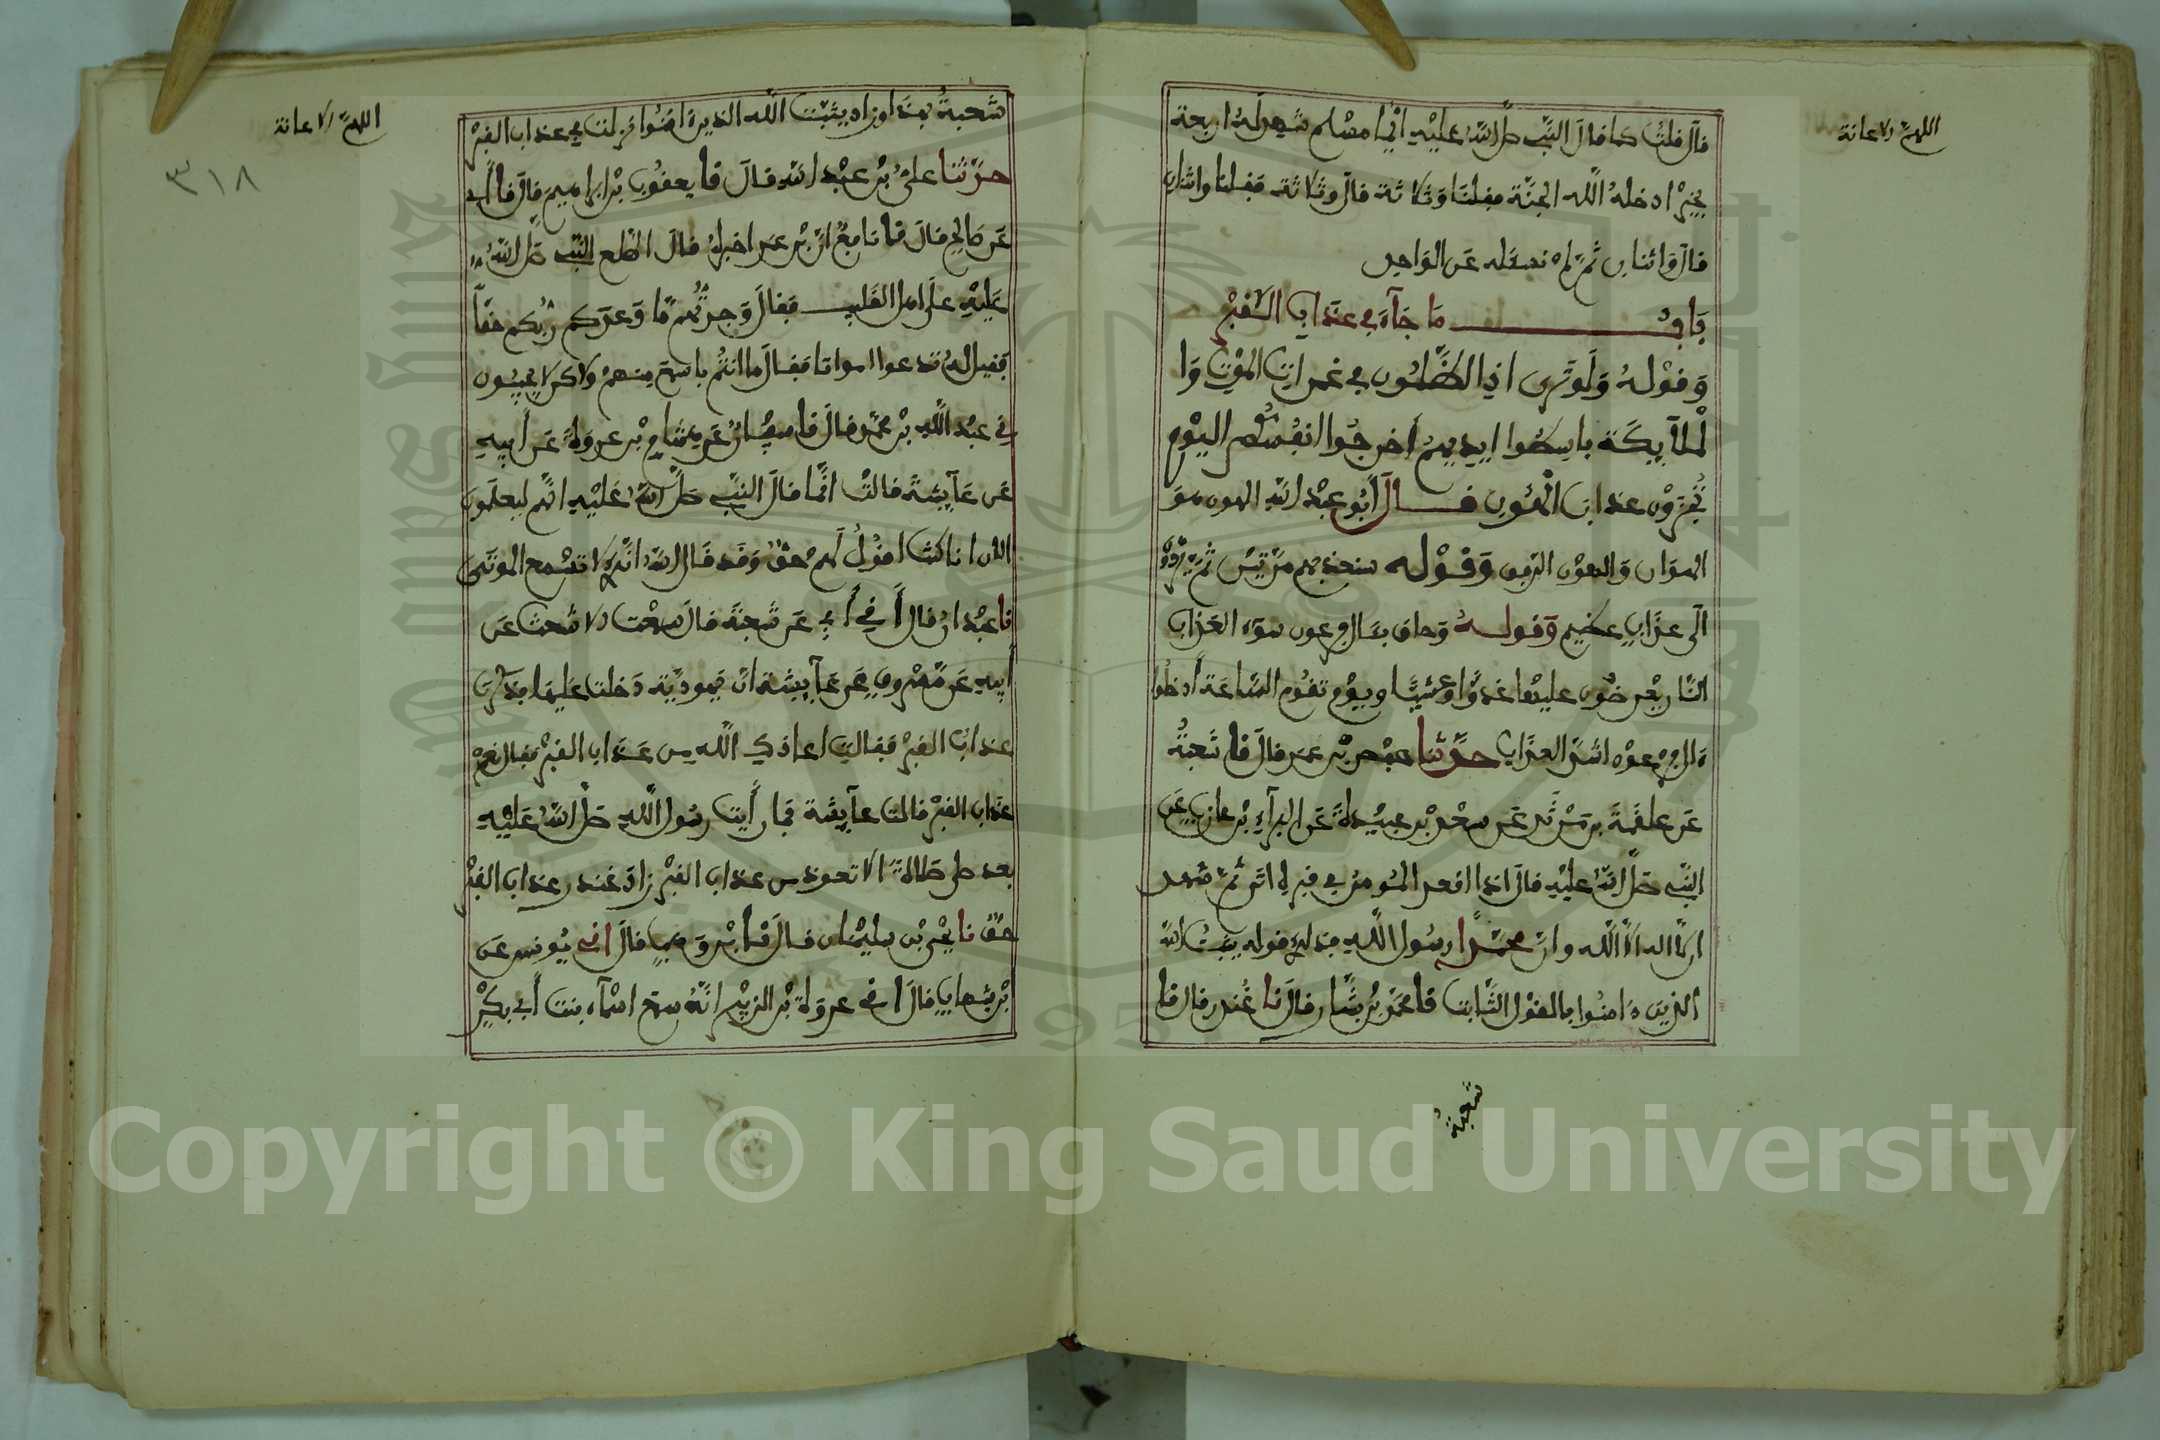 اللهم الاعانة
قال قلت كما قال النبي صلى الله عليه ايما مسلم شهد له اربعة
بخير ادخله الله الجنة فقلنا وثلاثة قال وثلاثة فقلنا واثنان
قال واثنان ثم لم نسئله عن الواحد
باب ما جاء في عذاب القبر
وقوله ولو ترى اذ الظلمون في غمرات الموت وا
لملآيكة باسطوا ايديهم أخرجوا انفسكم اليوم
تجزون عذاب الهون قال أبو عبد الله الهون هو
الهوان والهون الرفق وقوله سنعذبهم مرتين ثم يردون
الى عذاب عظيم وقوله وحاق بئال فرعون سوء العذاب
النار يعرضون عليها غدوا وعشيا ويوم تقوم الساعة أدخلوا
ءال فرعون اشد العذاب حدثنا حفص بن عمر قال نا شعبة
عن علقمة بن مرثد عن سعد بن عبيدة عن البراء بن عازب عن
النبي صلى الله عليه قال اذا اقعد المومن في قبره اتي ثم شهد
ان لا اله الا الله وان محمدا رسول الله فذلك قوله يثبت الله
الذين ءامنوا بالقول الثابت نا محمد بن بشار قال نا غندر قال نا
شعبة
اللهم الاعانة
٣١٨
شعبة بهذا وزاد يثبت الله الذين ءامنوا نزلت في عذاب القبر
حدثنا علي بن عبد الله قال نا يعقوب بن ابراهيم قال نا أبي
عن صالح قال نا نافع ان بن عمر اخبره قال اطلع النبي صلى الله
عليه على اهل القليب فقال وجدتم ما وعدكم ربكم حقا
فقيل له تدعوا امواتا فقال ما انتم باسمع منهم ولاكن لا يجيبون
ني عبد الله بن محمد قال نا سفيان عن هشام بن عروة عن أبيه
عن عآيشة قالت انما قال النبي صلى الله عليه انهم ليعلمون
الان ان ما كنت اقول لهم حق وقد قال الله انك لا تسمع الموتى
نا عبدان قال أني أبي عن شعبة قال سمعت الاشعث عن
أبيه عن مسروق عن عآيشة ان يهودية دخلت عليها فذكرت
عذاب القبر فقالت اعاذك الله من عذاب القبر فقال نعم
عذاب القبر قالت عآيشة فما رأيت رسول الله صلى الله عليه
بعد صلى صلاة الا تعوذ من عذاب القبر زاد غندر عذاب القبر
حق نا يحيى بن سليمان قال نا بن وهب قال اني يونس عن
بن شهاب قال اني عروة بن الزبير انه سمع اسماء بنت أبي بكر
Copyright © King Saud University